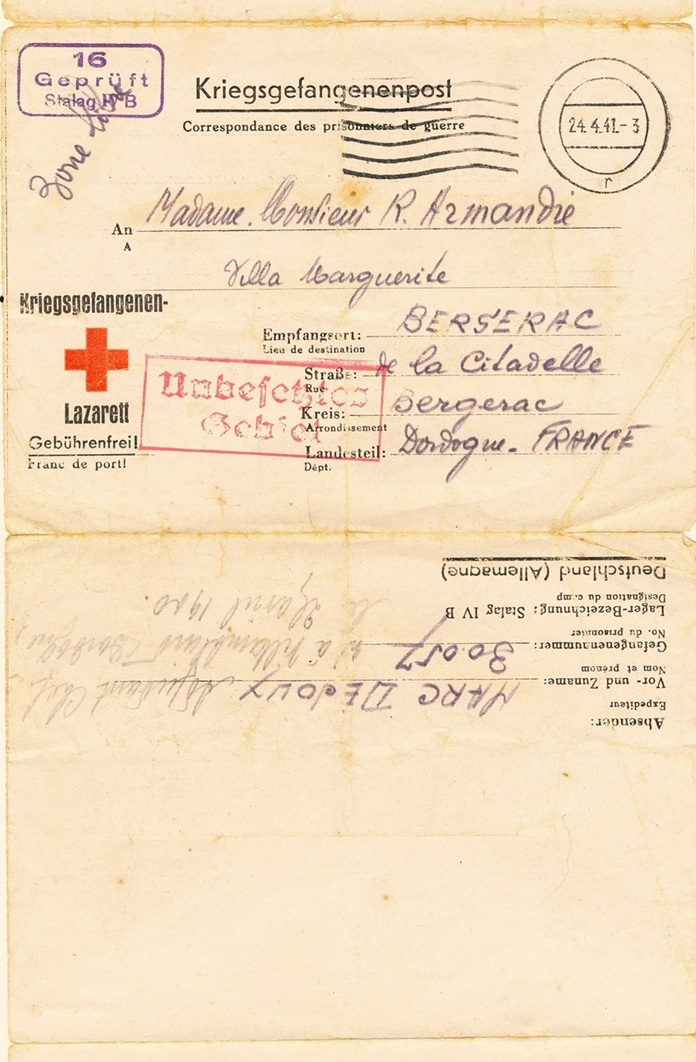 16
Geprüft
Stalag IV B
Zone libre
Kriegsgefangenenpost
Correspondance des prisonniers de guerre
24.4.41.-3
r
An Madame. Monsieur R. Armandie
A
Villa Marguerite
Kriegsgefangenen-
Lazarett
Gebührenfrei!
Franc de port!
Empfangsort: BERGERAC
Lieu de destination
Straße: de la Citadelle
Rue
Kreis: Bergerac
Arrondissement
Landesteil: Dordogne. FRANCE
Dépt.
Unbesetztes
Gebiet
Absender:
Expediteur
Vor- und Zuname: MARC DEJOUX Adjudant Chef
Nom et prénom
Gefangenennummer: 30057
No. du prisonnier
né à
Lager-Bezeichnung: Stalag IV B
Designation du camp
le avril 1900.
Deutschland (Allemagne)